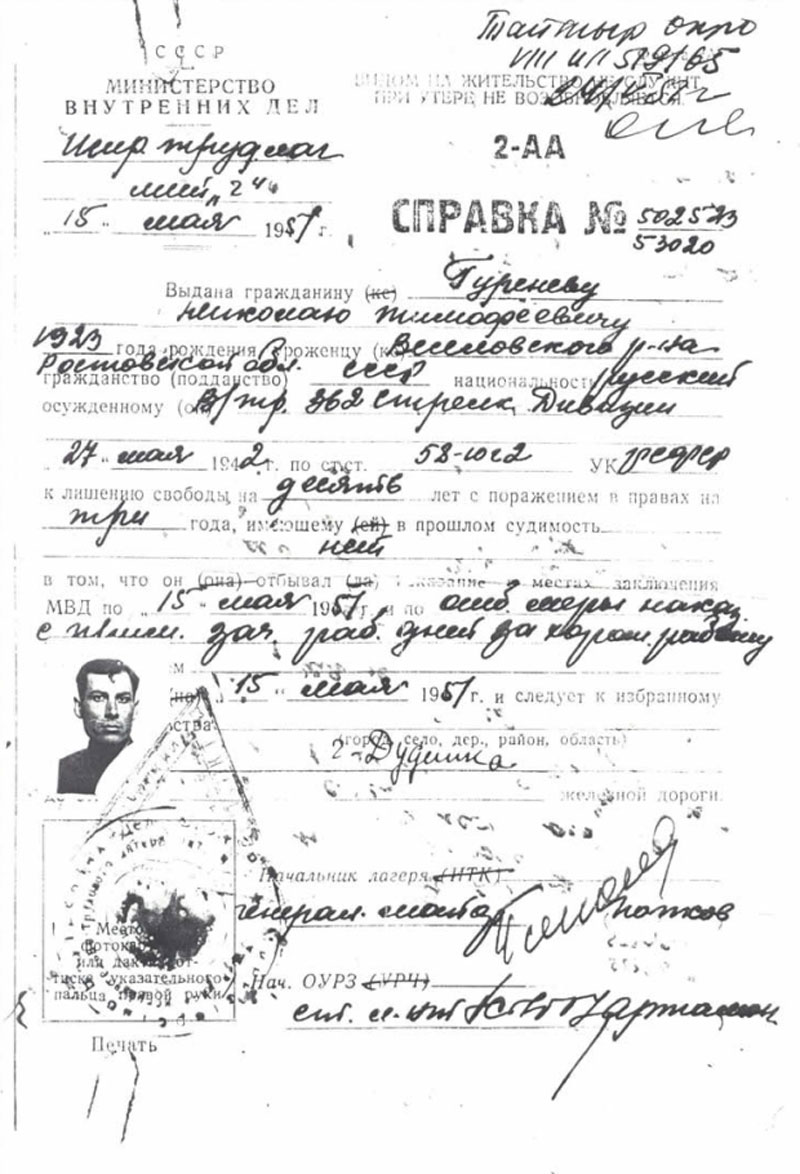 Таймыр окро
VIII ИЛ 519165
СССР
МИНИСТЕРСТВО
ВНУТРЕННИХ ДЕЛ
ВИДОМ НА ЖИТЕЛЬСТВО НЕ СЛУЖИТ
ПРИ УТЕРЕ НЕ ВОЗОБНОВЛЯЕТСЯ
2-АА
„15" мая 1951 г.
СПРАВКА № 502573
53020
Выдана гражданину (ке) Гуреневу
Николаю Тимофеевичу
1923 года рождения, уроженцу (ке) Веселовского р-на
Ростовской обл.
гражданство (подданство) СССР национальность русский
осужденному (ой) В/тр. 362 Стрелк. Дивизии
„27" мая 1942 г. по ст.ст. 58-10 ч 2 УК РСФСР
к лишению свободы на десять лет с поражением в правах на
три года, имеющему (ей) в прошлом судимость
нет
в том, что он (она) отбывал (ла) наказание в местах заключения
МВД по „15" мая 1951 г. и по отб. меры наказ.
с прим. зач. раб. дней за хорош. работу
„15" мая 1951 г. и следует к избранному
(город, село, дер., район, область)
г. Дудинка
железной дороги.
Начальник лагеря (ИТК)
генерал. майор
Место
фотока
или дакт от-
тиска указательного
пальца правой руки
Нач. ОУРЗ (УРЧ)
Печать